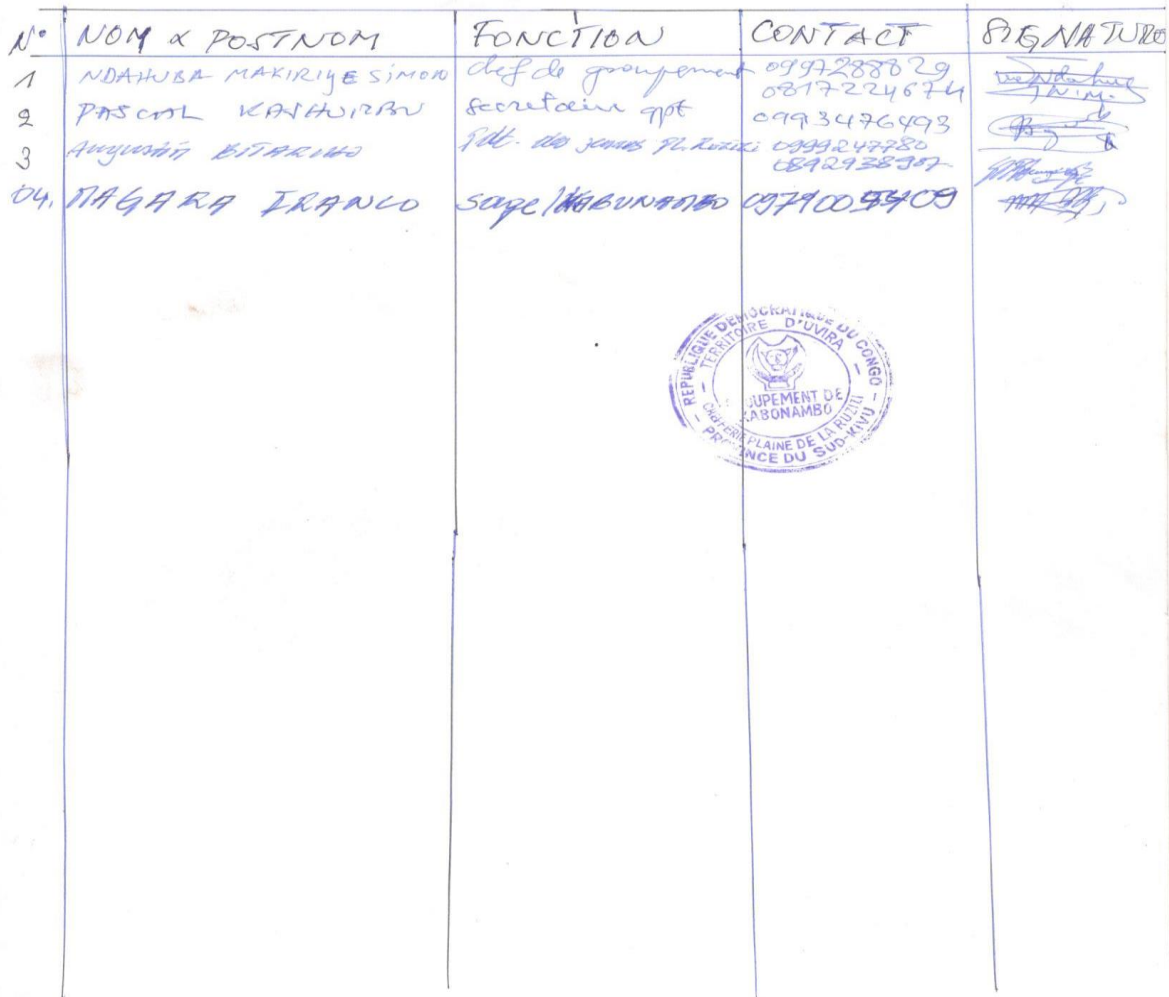 N° NOM & POSTNOM FONCTION CONTACT SIGNATURE
1 NDAHUBA MAKIRIYE SIMON chef de groupement 0997288829
0817224674
2 PASCAL secretaire gpt 0993476493
3 Augustin BITARIHO Pdt. des jeunes Pl. Ruzizi 0999247780
0892938907
04. MAGARA sage/KABUNAMBO
REPUBLIQUE DEMOCRATIQUE DU CONGO
TERRITOIRE D'UVIRA
UPEMENT DE
ABONAMBO
CHEFFERIE PLAINE DE LA RUZIZI
PROVINCE DU SUD-KIVU